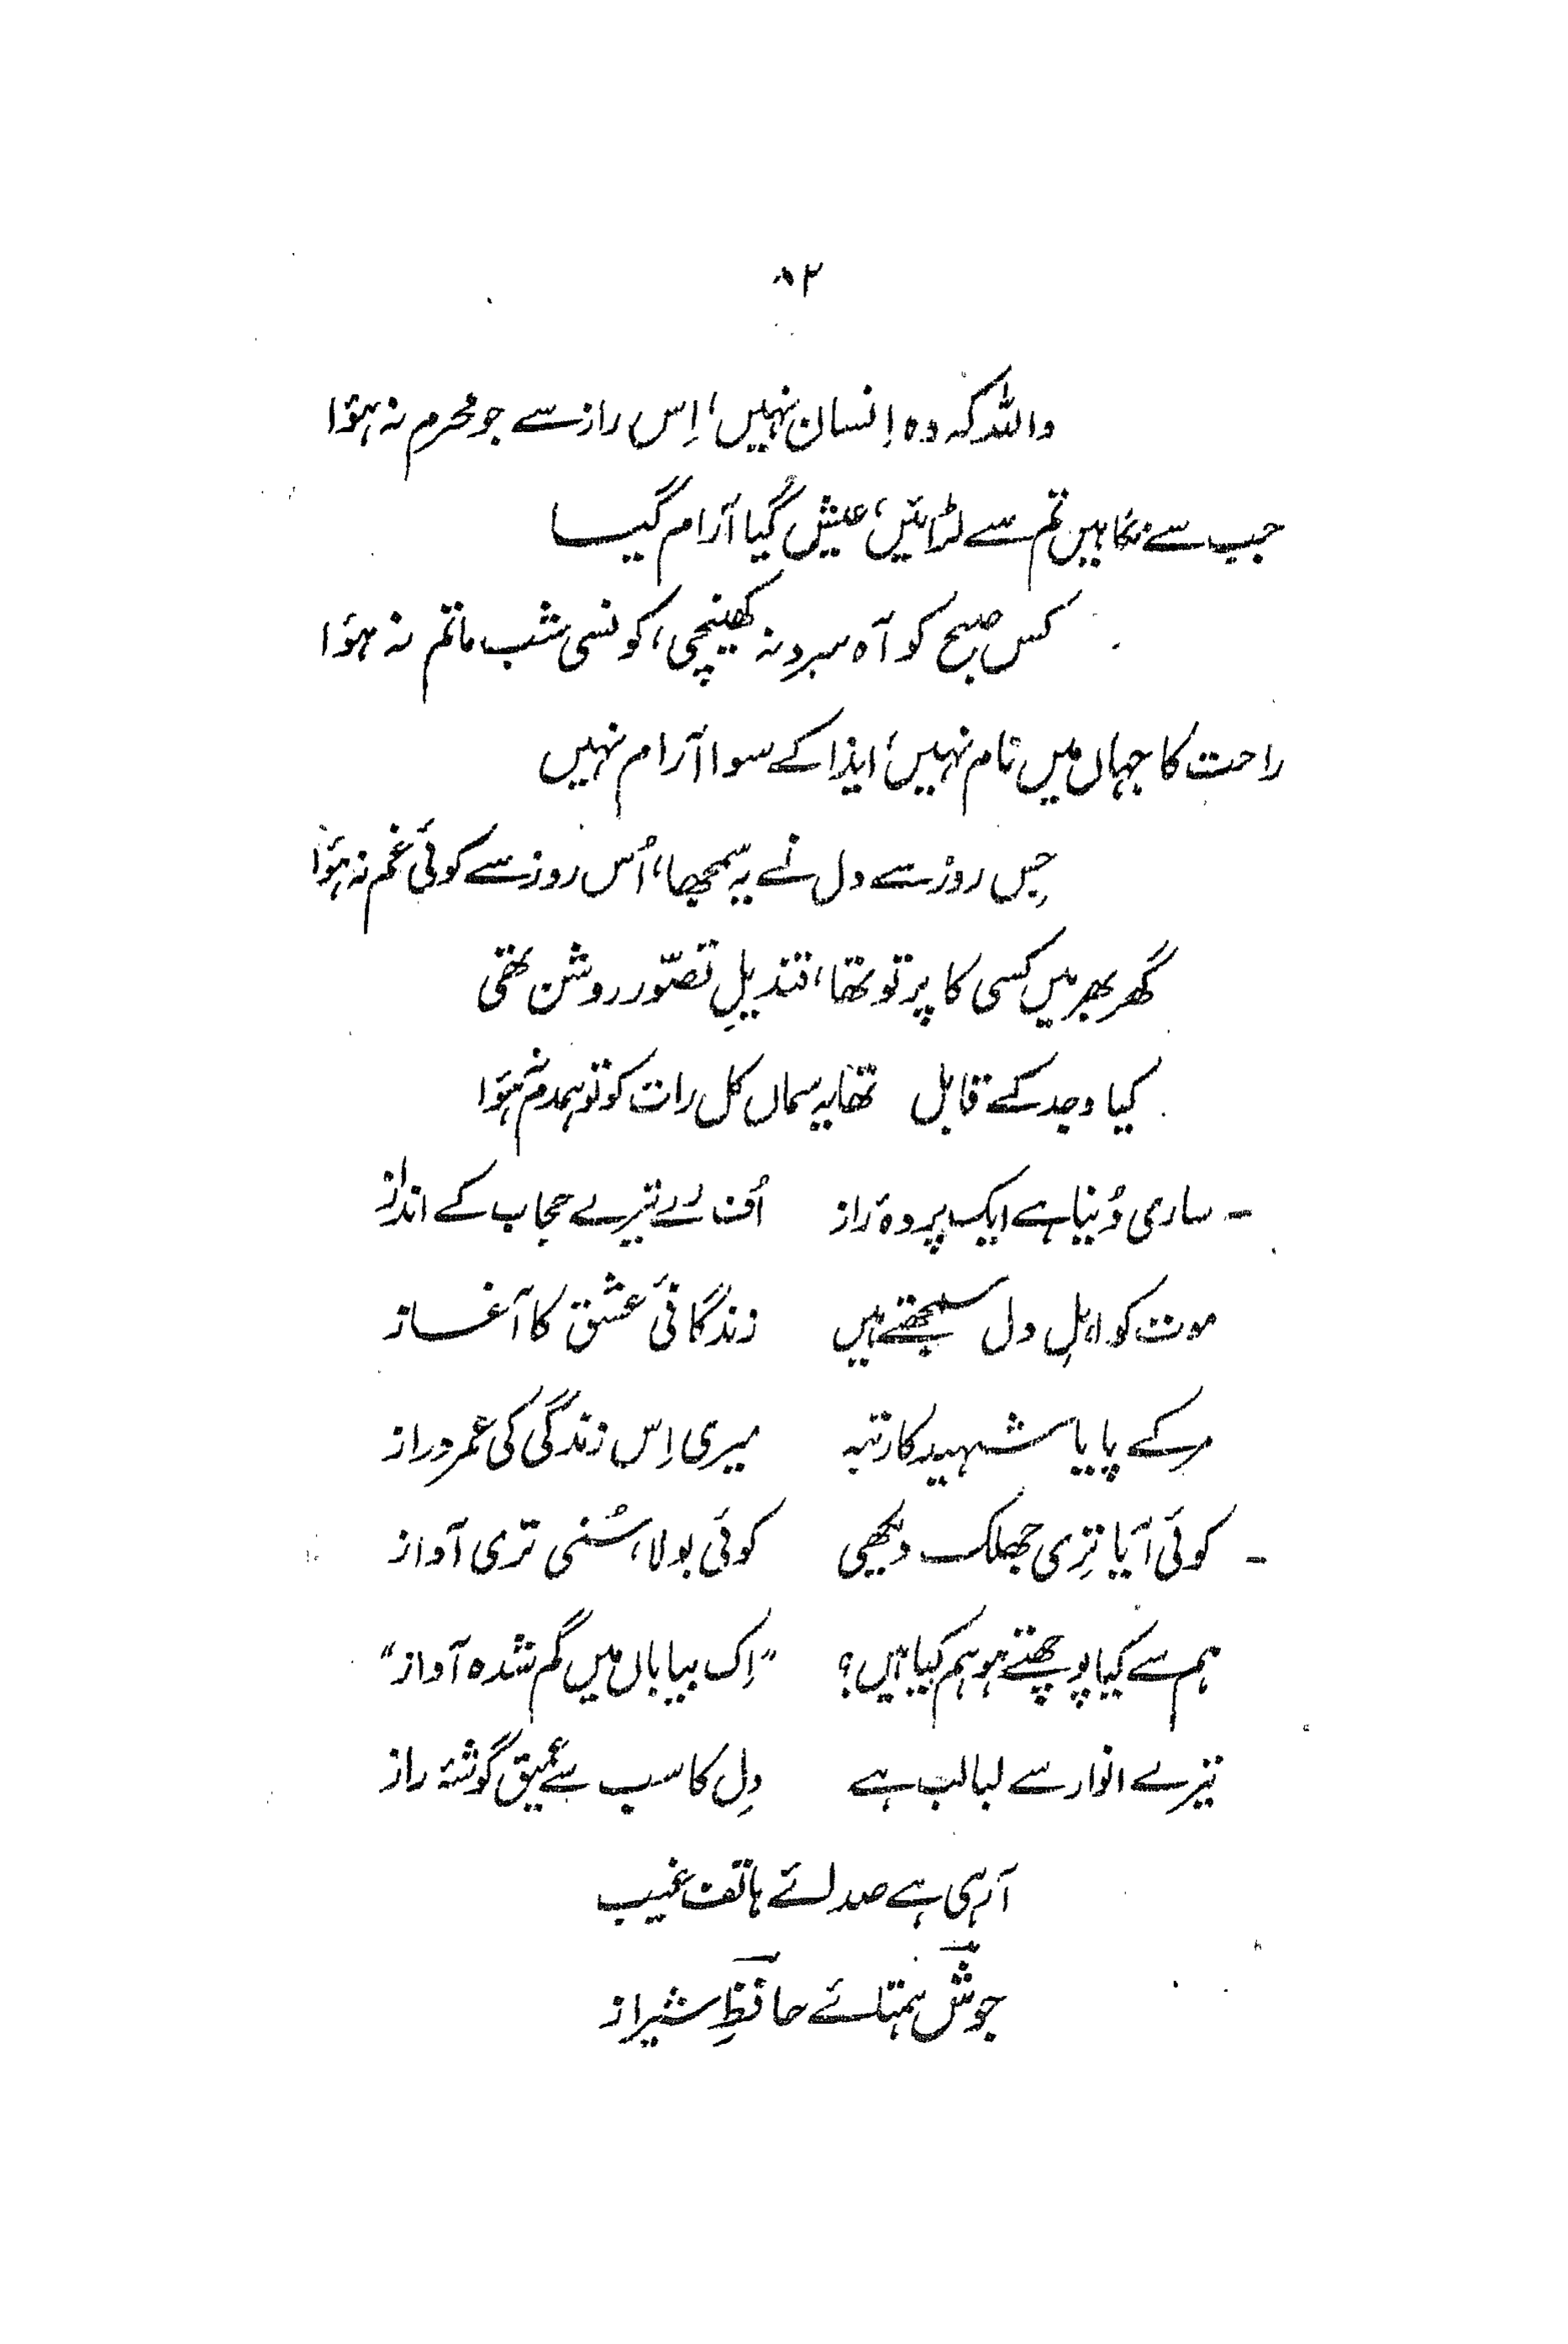 ۸۲
واللہ کہ وہ اِنسان نہیں، اِس راز سے جو محرم نہ ہؤا
جب سے نگاہیں تم سے لڑائیں، عیش گیا آرام گیا
کس صبح کو آہ سرد نہ کھینچی، کونسی شب ماتم نہ ہؤا
راحت کا جہاں میں نام نہیں، ایذا کے سوا آرام نہیں
جِس روز سے دل نے یہ سمجھا، اُس روز سے کوئی غم نہ ہؤا
گھر بھر میں کسی کا پرتو تھا، قندیلِ تصوّر روشن تھی
کیا وجد کے قابل تھا یہ سماں کل رات کو تو ہمدم نہ ہؤا
- ساری دُنیا ہے ایک پردۂ راز اُف رے تیرے حجاب کے انداز
موت کو اہلِ دل سمجھتے ہیں زندگانیٔ عشق کا آغاز
مر کے پایا شہید کا رتبہ میری اِس زندگی کی عمر دراز
- کوئی آیا تِری جھلک دیکھی کوئی بولا، سُنی تری آواز
ہم سے کیا پوچھتے ہو ہم کیا ہیں؟ "اِک بیاباں میں گم شدہ آواز"
تیرے انوار سے لبالب ہے دِل کا سب سے عمیق گوشۂ راز
آ رہی ہے صدائے ہاتف غیب
جوشؔ ہمتائے حافظِؔ شیراز